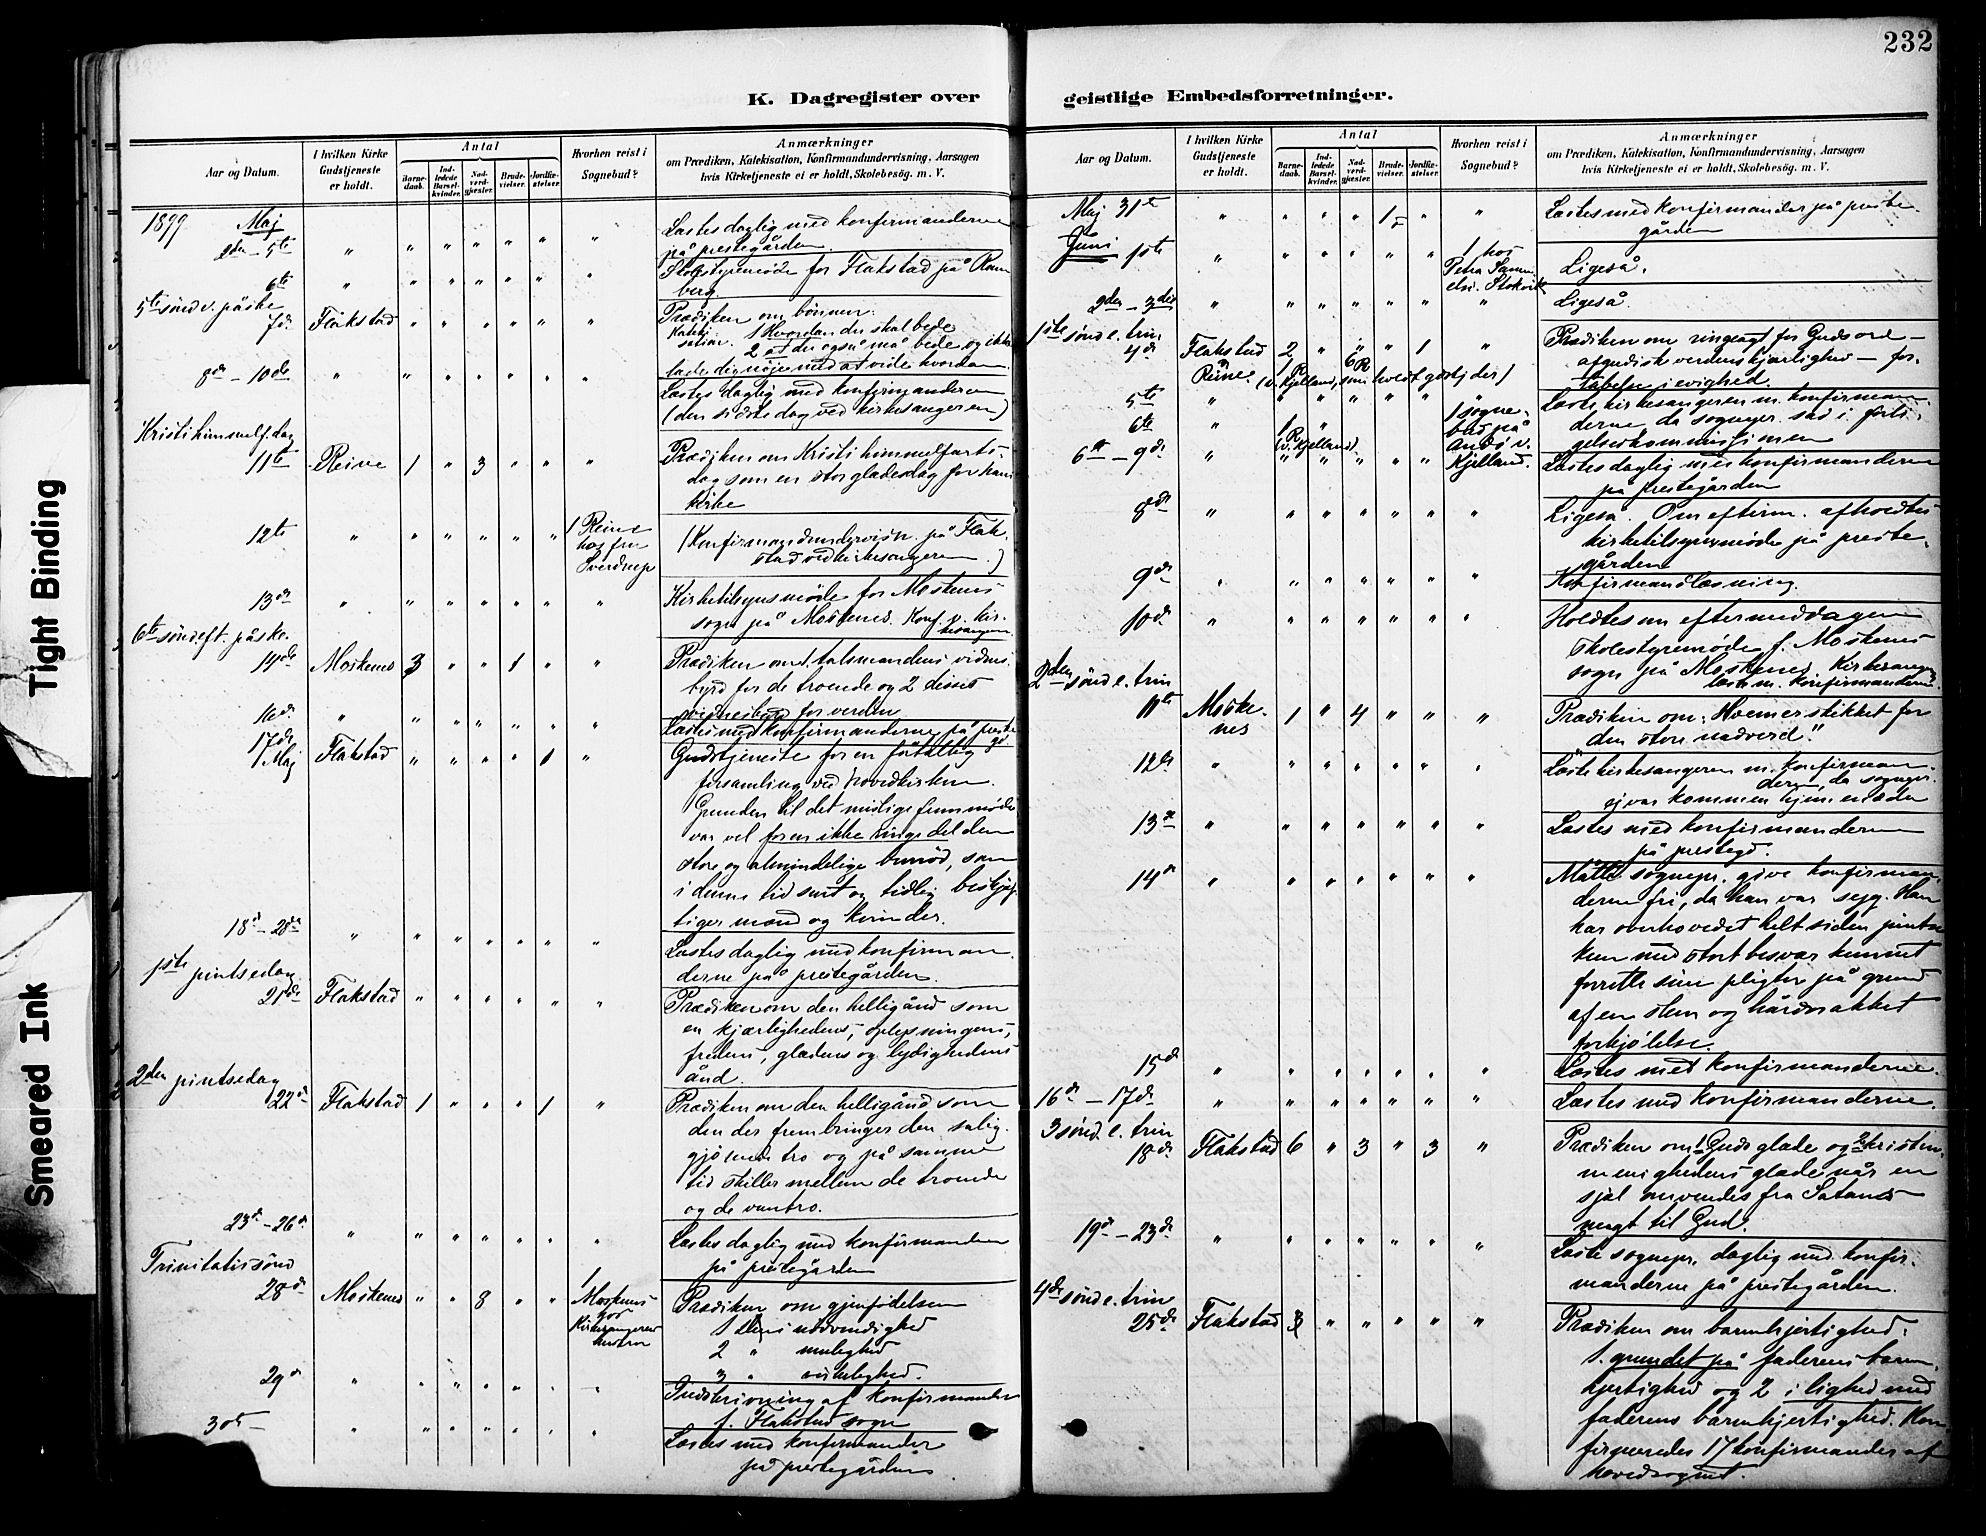 232
K. Dagregister over
geistlige Embedsforretninger.
Aar og Datum.
I hvilken Kirke Gudstjeneste er holdt.
Antal
Barnedaab.
Indledede Barselkvinder.
Nadverdgjæster.
Brudevielser.
Jordfæstelser.
Hvorhen reist i Sognebud?
Anmærkninger
om Prædiken, Katekisation, Konfirmandundervisning, Aarsagen
hvis Kirketjeneste ei er holdt, Skolebesøg. m. V.
1899 Maj
2den - 5te " " " " " " "
Læstes daglig med konfirmanderne
på prestegården.
6te " " " " " " "
Skolestyremøde for Flakstad på Ram
berg.
5te sønd e. påske
7de Flakstad " " " " " "
Prædiken om bønnen:
Kateki
sation. 1 Hvordan du skal bede
2 at du også må bede og ikke
lade dig nøje med at vide hvordan.
8de - 10de " " " " " " "
Læstes daglig med konfirmanderne
(den sidste dag ved kirkesangeren)
Kristi himmelf. dag
11te Reine 1 " 3 " " "
Prædiken om Kristi himmelfarts
dag som en stor glædesdag for hans
kirke
12te " " " " " " 1 Reine
hos fru
Sverdrup
(Konfirmandundervisn. på Flak
stad ved kirkesangeren.)
13de " " " " " " "
Kirketilsynsmøde for Moskenes
sogn på Moskenes. Konf. v. kir
kesangeren
6te sønd eft. påske.
14de Moskenes 3 " " 1 " "
Prædiken om 1. talsmandens vidnes
byrd for de troende og 2 disses
vidnesbyrd for verden
16de " " " " " " "
Læstes med konfirmanderne på preste
gd
17de Maj Flakstad " " " " 1 "
Gudstjeneste for en fåtallig
forsamling ved hovedkirken.
Grunden til det ringe fremmøde
var vel for en ikke ringe del den
store og almindelige
i denne tid sent og tidlig beskjæf
tiger mænd og kvinder.
18de - 20de " " " " " " "
Læstes daglig med konfirman
derne på prestegården.
1ste pintsedag
21de Flakstad " " " " " "
Prædiken om den helligånd som
en kjærlighedens, oplysningens,
fredens, glædens og lydighedens
ånd.
2den pintsedag
22de Flakstad 1 " " " 1 "
Prædiken om den helligånd som
den der frembringer den salig
gjørende tro og på samme
tid skiller mellem de troende
og de vantro.
23de - 26de " " " " " " "
Læstes daglig med konfirmanderne
på prestegården
Trinitatis sønd
28de Moskenes " " 8 " " 1
Moskenes
hos
Kirkesangerens
hustru
Prædiken om gjenfødelsen
1 dens nødvendighed
2 " mulighed
3 " virkelighed.
29de " " " " " " "
Indskrivning af konfirmander
f. Flakstad sogn
30te " " " " " " "
Læstes med konfirmander
på prestegården
Aar og Datum.
I hvilken Kirke Gudstjeneste er holdt.
Antal
Barnedaab.
Indledede Barselkvinder.
Nadverdgjæster.
Brudevielser.
Jordfæstelser.
Hvorhen reist i Sognebud?
Anmærkninger
om Prædiken, Katekisation, Konfirmandundervisning, Aarsagen
hvis Kirketjeneste ei er holdt, Skolebesøg. m. V.
Maj 31te " " " " 1 " "
Læstes med konfirmander på preste
gården
Juni 1ste " " " " " " 1 hos
Petra Samu
elsn. Stokvik
Ligeså.
2den - 3die " " " " " " "
Ligeså.
1ste sønd e. trin
4de Flakstad 2 " " " 1 "
Reine 1 R 6 R
(v. Kjelland, som holdt gdstj der)
Prædiken om ringeagt for Guds ord –
afgudisk verdenskjærlighed – for
tabelse i evighed.
5te " " " " " " "
6te " 1 R "
(v. Kjelland)
1 sogne
bud på
Andø v.
Kjelland.
Læste kirkesangeren m. konfirman
derne da sognepr. sad i forli
gelseskommissionen
6te - 9de " " " " " "
Læstes daglig med konfirmanderne
på prestegården
8de " " " " " " "
Ligeså. Om efterm. afholdtes
kirketilsynsmøde på preste
gården
9de " " " " " " "
Konfirmandlæsning.
10de " " " " " " "
Holdtes om eftermiddagen
skolestyremøde f. Moskenes
sogn på Moskenes. Kirkesangeren
læste m. konfirmanderne.
2den sønd e. trin
11te Moske
nes 1 " 4 " " "
Prædiken om: Hvem er stikket for
den store nadverd."
12te " " " " " " "
Læste kirkesangeren m. konfirman
derne, da sognepr.
ej var kommen hjem endda
13de " " " " " " "
Læstes med konfirmanderne
på prestegd.
14de " " " " " " "
Måtte sognepr. give konfirman
derne fri, da han var syg. Han
har overhovedet helt siden pintse
kun med stort besvær kunnet
forrette sine pligter på grund
af en slem og hårdnakket
forkjølelse.
15de " " " " " " "
Læstes med konfirmanderne.
16de - 17de " " " " " " "
Læstes med konfirmanderne.
3 sønd. e. trin
18de Flakstad 6 " 3 " 3 "
Prædiken om 1 Guds glæde og 2 kristen
menighedens glæde når en
sjæl omvendes fra Satans
magt til Gud.
19de - 23de " " " " " " "
Læste sognepr. daglig med konfir
manderne på prestegården.
4de sønd e. trin
25de Flakstad 3 " " " " "
Prædiken om barmhjertighed:
1. grundet på faderens barm
hjertighed og 2 i lighed med
faderens barmhjertighed. Kon
firmeredes 17 konfirmander af
hovedsognet.
Tight Binding
Smeared Ink